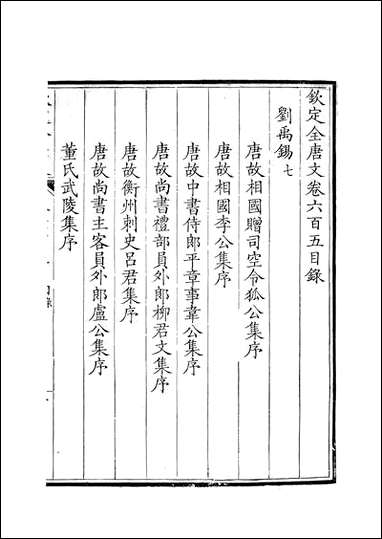 欽定全唐文卷六百五目錄
劉禹錫 七
唐故相國贈司空令狐公集序
唐故相國李公集序
唐故中書侍郎平章事韋公集序
唐故尚書禮部員外郎柳君文集序
唐故衡州刺史呂君集序
唐故尚書主客員外郎盧公集序
董氏武陵集序